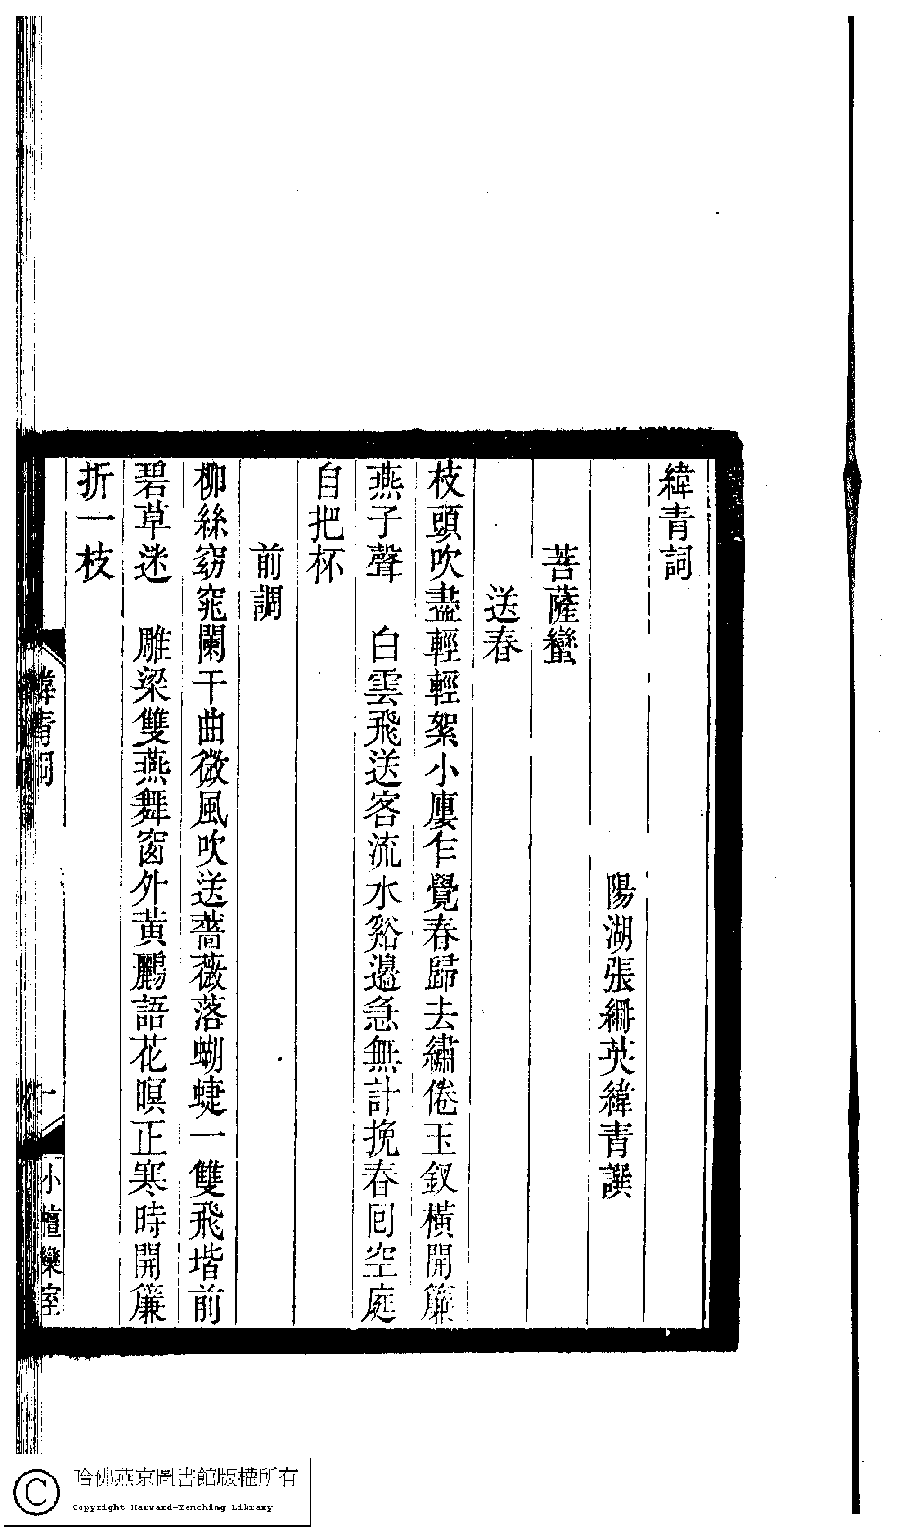 緯青詞
陽湖張䌌英緯青譔
菩薩蠻
送春
枝頭吹盡輕輕絮小廔乍覺春歸去繡倦玉釵橫開簾
燕子聲　白雲飛送客流水谿邊急無計挽春囘空庭
自把杯
前調
柳絲窈窕闌干曲微風吹送薔薇落蝴蜨一雙飛堦前
碧草迷　雕梁雙燕舞窗外黃鸝語花暝正寒時開簾
折一枝
緯青詞
一
小檀欒室
哈佛燕京圖書館版權所有
Copyright Harvard-Yenching Library